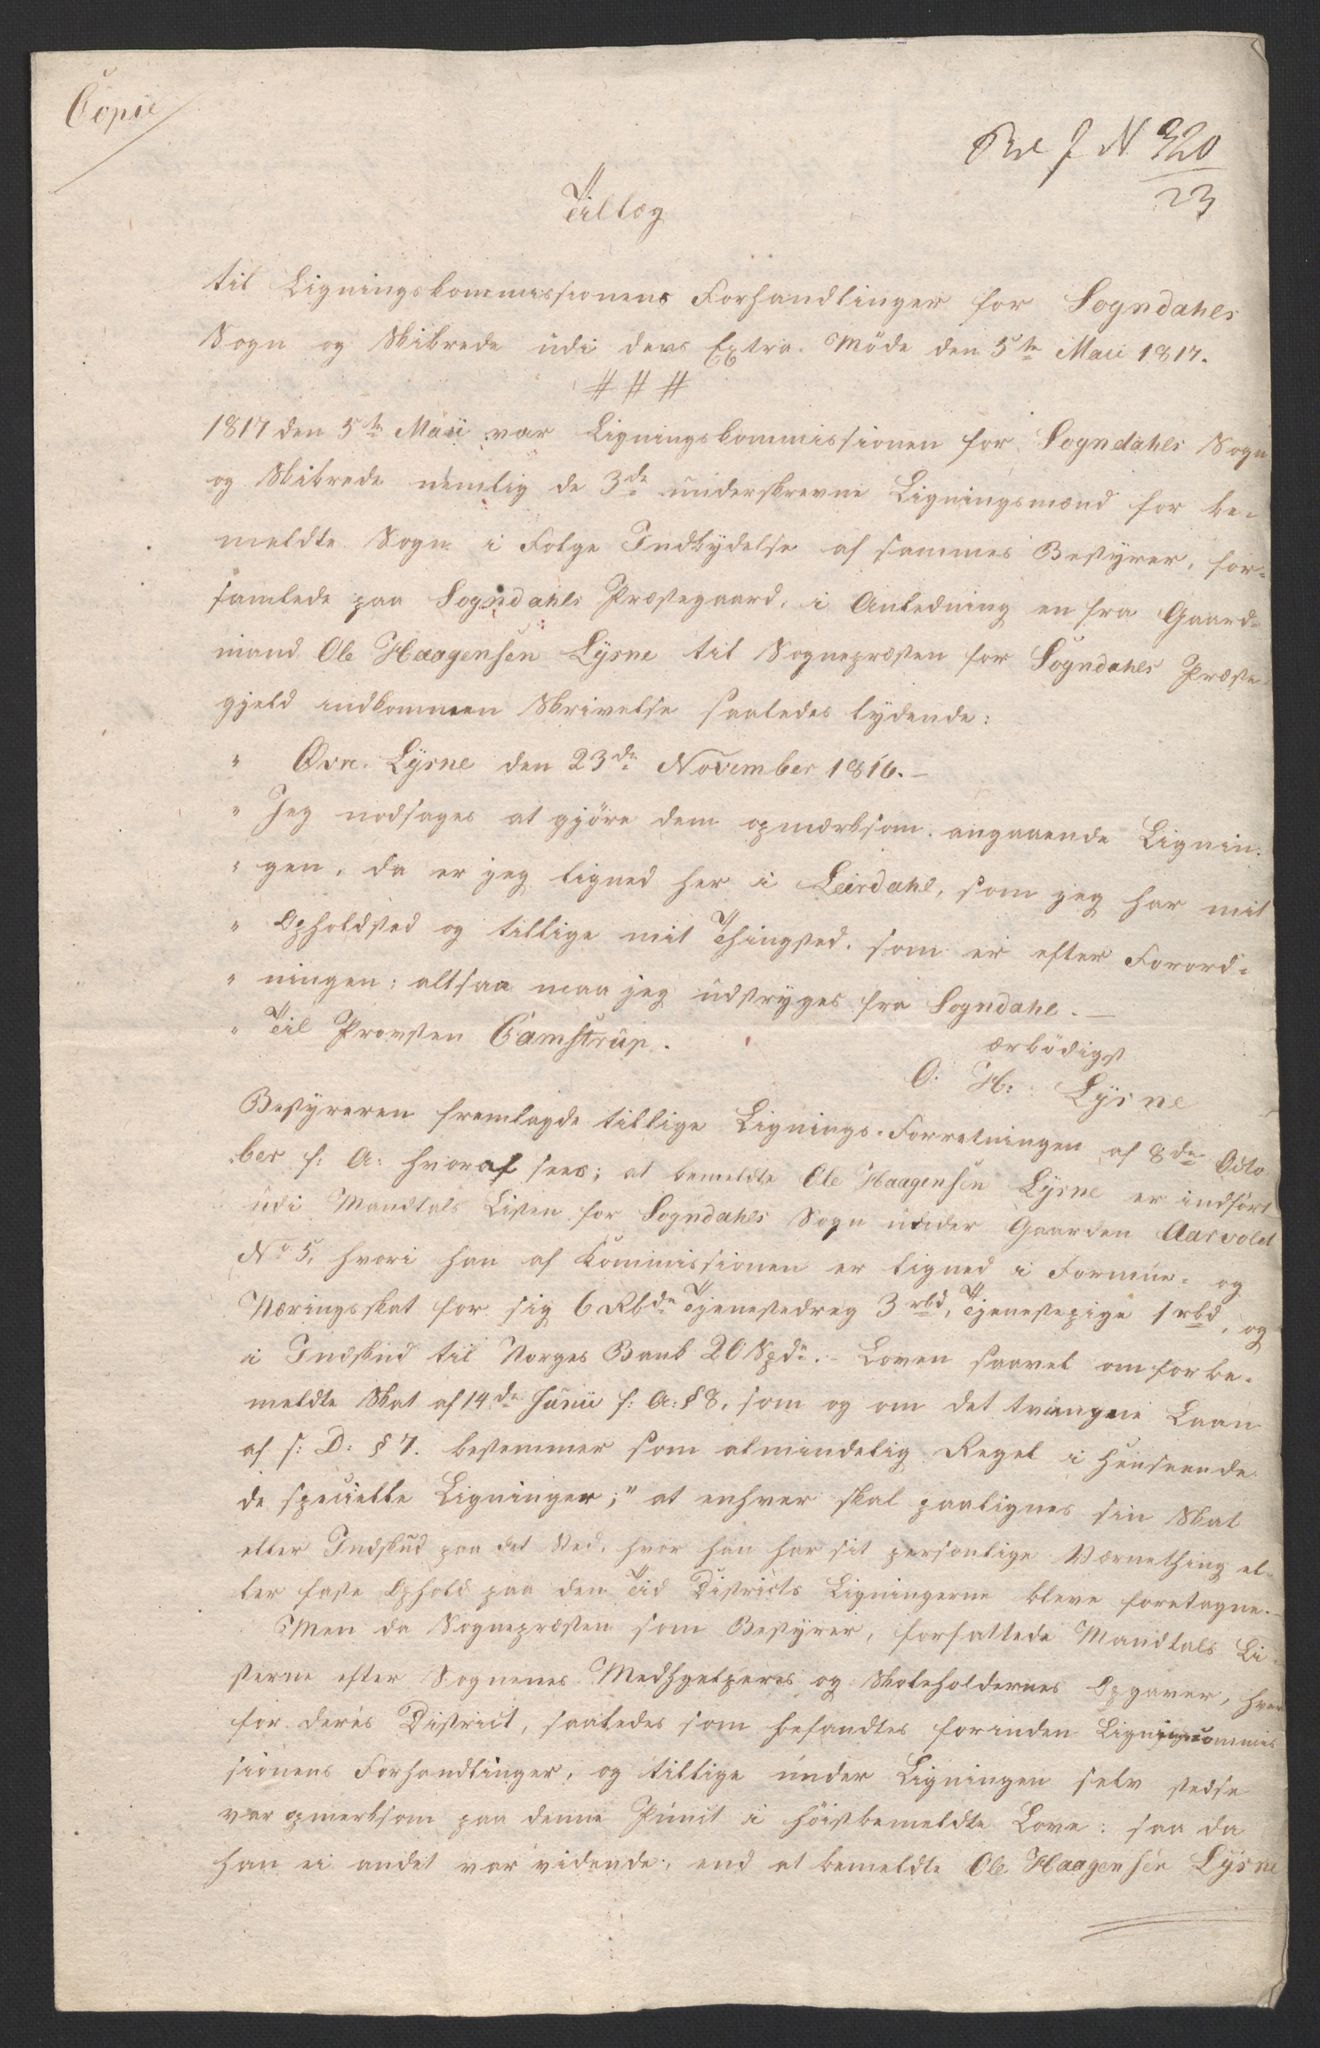 Copie
J N 320
23
Tillæg
til Ligningskommissionens Forhandlinger for Sogndahls
Sogn og Skibrede udi dens Extra Möde den 5te Maii 1817.
###
1817 den 5te Maii var Ligningskommissionen for Sogndahls Sogn
og Skibrede nemlig de 3de underskrevne Ligningsmænd for be-
meldte Sogn i Følge Indbydelse af sammes Bestyrer, for-
samlede paa Sogndahls Præstegaard, i Anledning en fra Gaard-
mand Ole Haagensen Lysne til Sognepræsten for Sogndahls Præste-
gjeld indkommen Skrivelse saaledes lydende:
" Øvre Lysne den 23de November 1816.-
" Jeg nødsages at gjöre dem opmærksom angaaende Lignin-
" gen, da er jeg ligned her i Leirdahl, som jeg har mit
" Opholdsted og tillige mit Thingsted, som er efter Forord-
" ningen; altsaa maa jeg udstryges fra Sogndahl.-
" Til Provsten Gamstrup. ærbödigst
O. H: Lysne
Bestyreren fremlagde tillige Lignings-Forretningen af 8de Octo
ber f: A: hvoraf sees; at bemeldte Ole Haagensen Lysne er indfört
udi Mandtals Listen for Sogndahls Sogn under Gaarden Aarvold
No 5, hvori han af Kommissionen er ligned i Formue- og
Næringsskat for sig 6 Rbdr Tjenestedreng 3 rbd, Tjenestepige 1 rbd, og
i Indskud til Norges Bank 20 Spdr.- Loven saavel om forbe-
meldte Skat af 14de Junii f: A: § 8, som og om det tvungne Laan
af s: D: § 7. bestemmer som almindelig Regel i Henseende
de specielle Ligninger; " at enhver skal paalignes sin Skat
eller Indskud paa det Sted, hvor han har sit personlige Værnething el-
ler faste Ophold paa den Tid Districts Ligningerne bleve foretagne.-
Men da Sognepræsten som Bestyrer, forfattede Mandtals Li-
sterne efter Sognenes Medhjelperes og Skoleholdernes Opgaver, hver
for deres District, saaledes som befandtes forinden Ligningscommis
sionens Forhandlinger, og tillige under Ligningen selv stedse
var opmerksom paa denne Punct i höistbemeldte Love: saa da
han ei andet var vidende, end at bemeldte Ole Haagensen Lysne